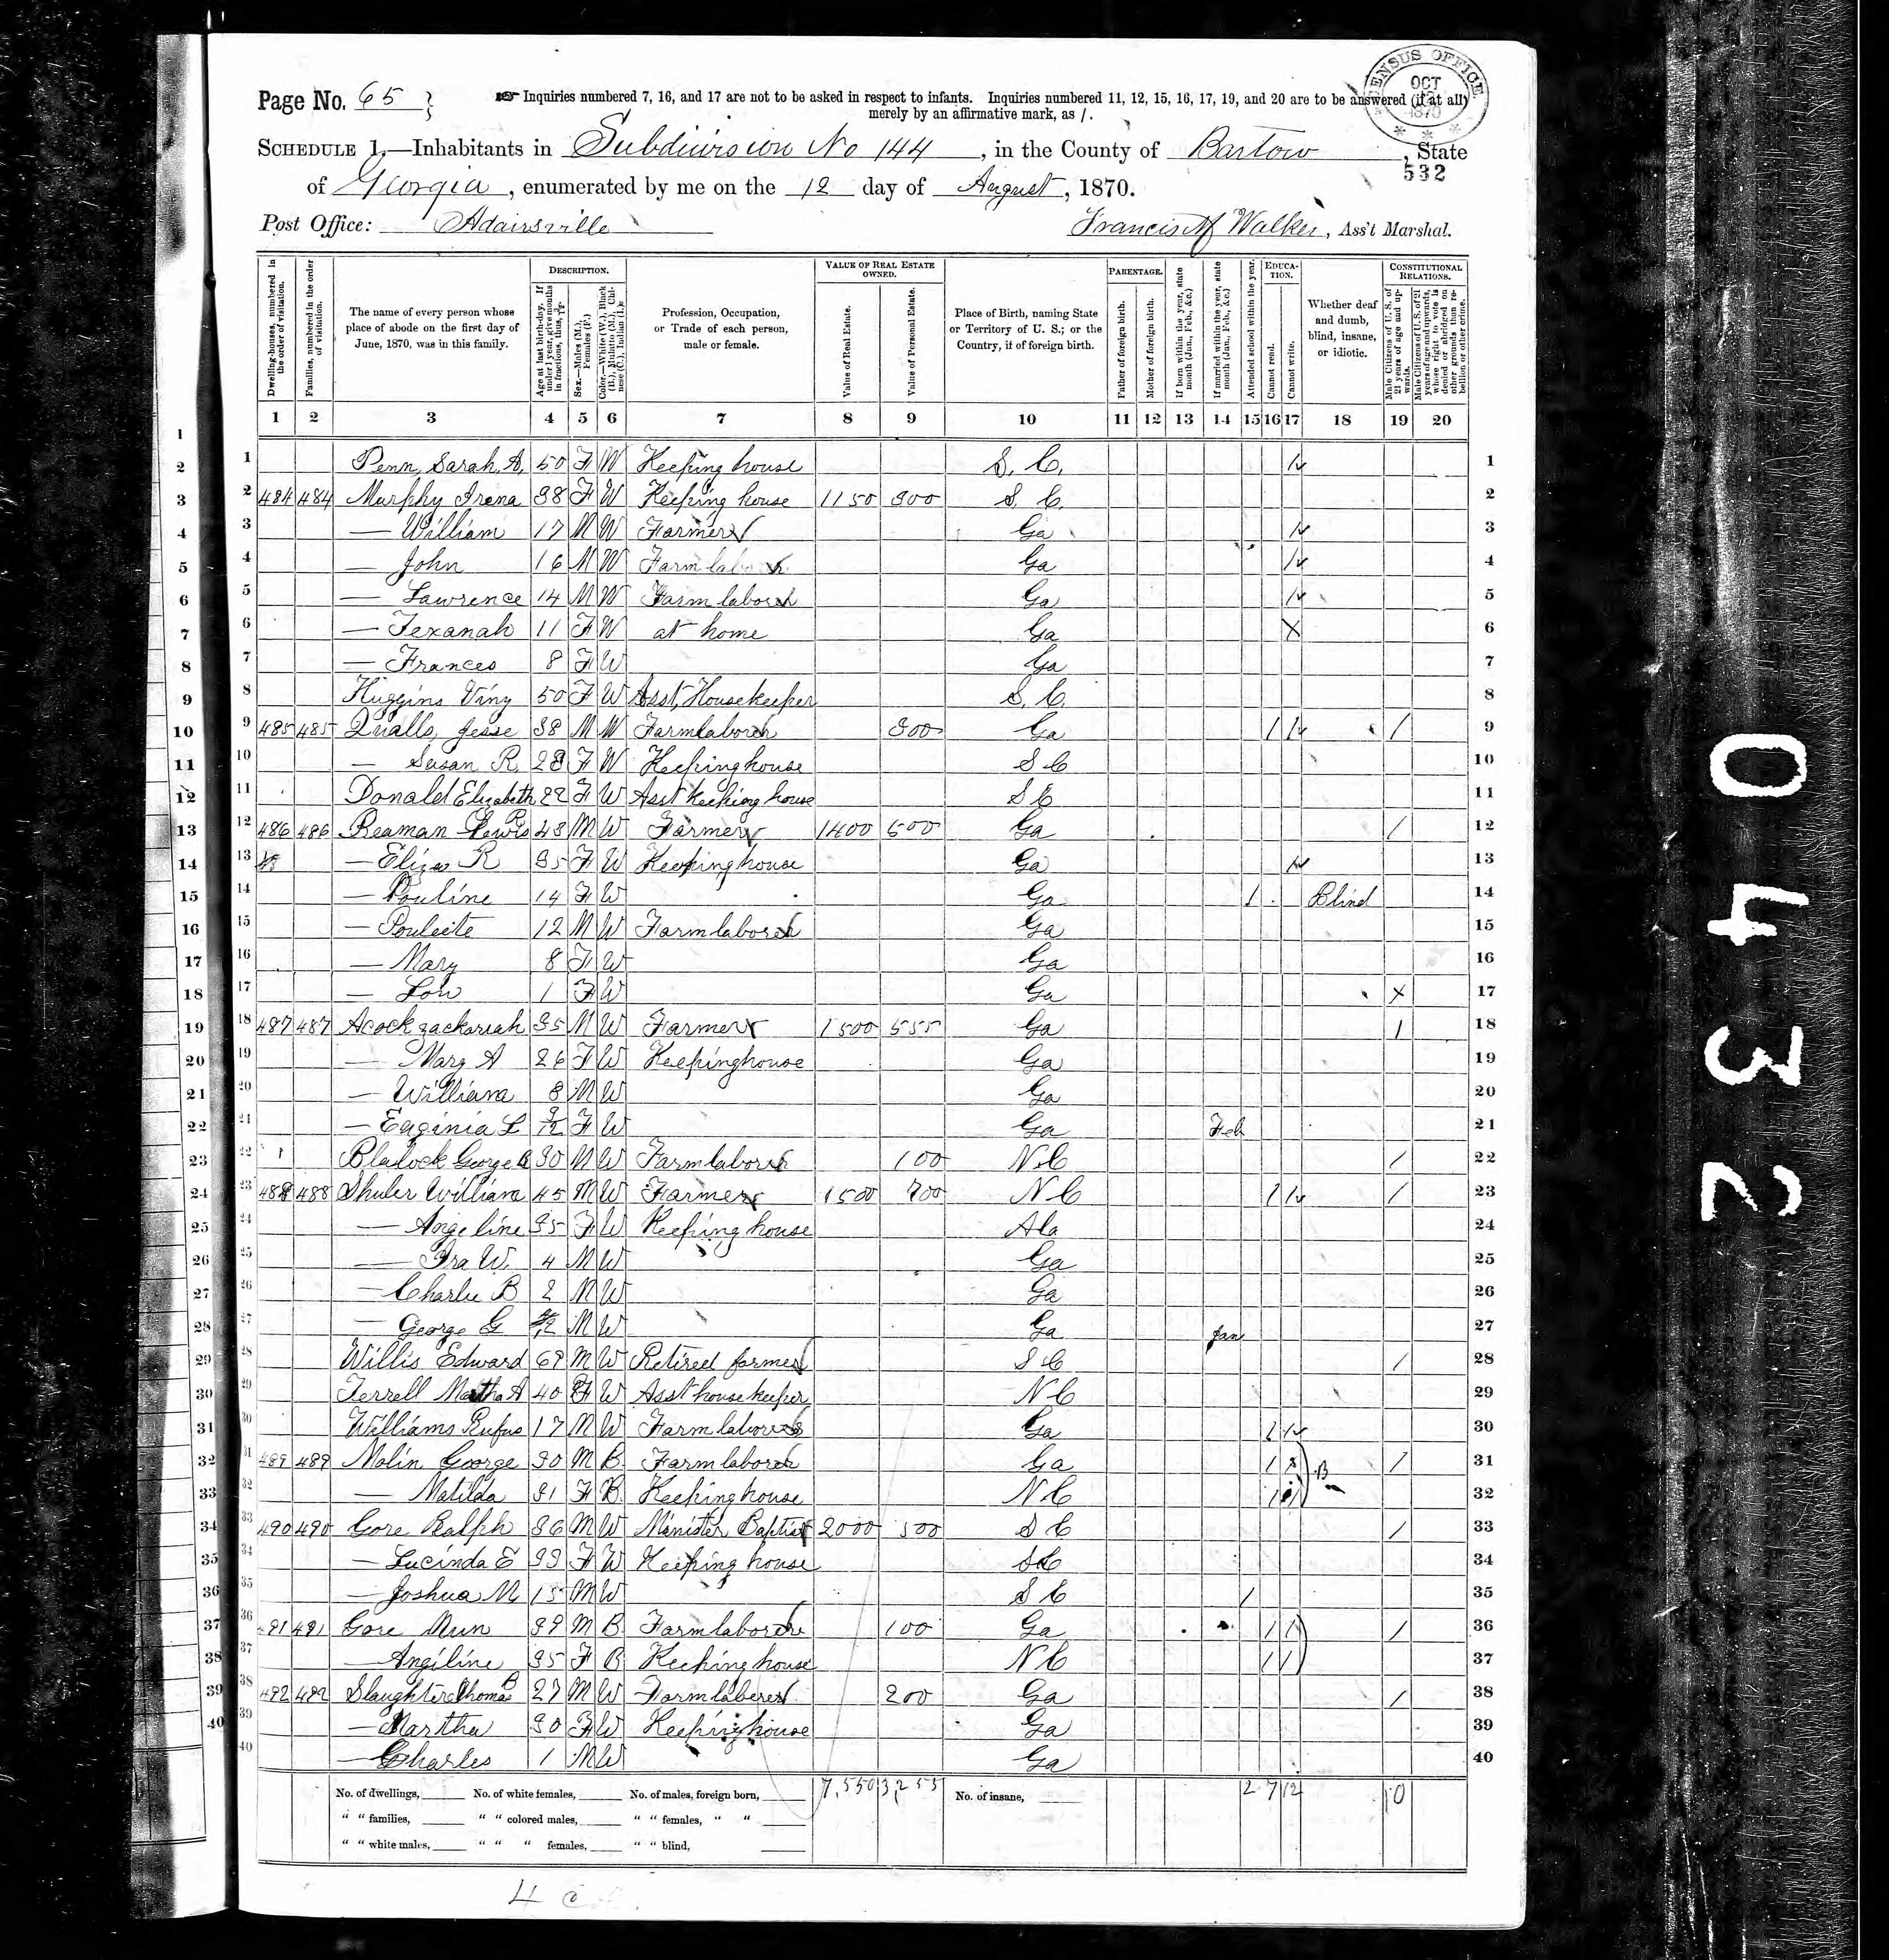 Page No. 65
Inquiries numbered 7, 16, and 17 are not to be asked in respect to infants. Inquiries numbered 11, 12, 15, 16, 17, 19, and 20 are to be answered (if at all)
merely by an affirmative mark, as /.
CENSUS OFFICE OCT 1870
SCHEDULE 1.—Inhabitants in Subdivision No 144, in the County of Bartow, State
532
of Georgia, enumerated by me on the 12 day of August, 1870.
Post Office: Adairsville Francis M Walker, Ass't Marshal.
Dwelling-houses, numbered in the order of visitation.
Families, numbered in the order of visitation.
The name of every person whose place of abode on the first day of June, 1870, was in this family.
DESCRIPTION.
Age at last birth-day. If under 1 year, give months in fractions, thus, 3/12.
Sex.—Males (M.), Females (F.)
Color.—White (W.), Black (B.), Mulatto (M.), Chinese (C.), Indian (I.)
Profession, Occupation, or Trade of each person, male or female.
VALUE OF REAL ESTATE OWNED.
Value of Real Estate.
Value of Personal Estate.
Place of Birth, naming State or Territory of U. S.; or the Country, if of foreign birth.
PARENTAGE.
Father of foreign birth.
Mother of foreign birth.
If born within the year, state month (Jan., Feb., &c.)
If married within the year, state month (Jan., Feb., &c.)
Attended school within the year.
EDUCATION.
Cannot read.
Cannot write.
Whether deaf and dumb, blind, insane, or idiotic.
CONSTITUTIONAL RELATIONS.
Male Citizens of U. S. of 21 years of age and upwards.
Male Citizens of U. S. of 21 years of age and upwards, whose right to vote is denied or abridged on other grounds than rebellion or other crime.
1 2 3 4 5 6 7 8 9 10 11 12 13 14 15 16 17 18 19 20
1 Penn, Sarah A. 50 F W Keeping house S. C. / 1
2 484 484 Murphy Irena 38 F W Keeping house 1150 300 S. C. 2
3 — William 17 M W Farmer Ga / 3
4 — John 16 M W Farm laborer Ga / 4
5 — Lawrence 14 M W Farm laborer Ga / 5
6 — Texanah 11 F W at home Ga X 6
7 — Frances 8 F W Ga 7
8 Huggins Viny 50 F W Asst, Housekeeper S. C. 8
9 485 485 Qualls, Jesse 38 M W Farm laborer 300 Ga / / / 9
10 — Susan R. 28 F W Keeping house S C 10
11 Donald Elizabeth 22 F W Asst Keeping house S C 11
12 486 486 Reaman Lewis R 48 M W Farmer 1400 500 Ga / 12
13 — Eliza R 35 F W Keeping house Ga / 13
14 — Pouline 14 F W Ga / Blind 14
15 — 12 M W Farm laborer Ga 15
16 — Mary 8 F W Ga 16
17 — Lou 1 F W Ga X 17
18 487 487 Acock Zackariah 35 M W Farmer 1500 555 Ga / 18
19 — Mary A 26 F W Keeping house Ga 19
20 — William 8 M W Ga 20
21 — Euginia L F W Ga Feb 21
22 Blalock George 30 M W Farm laborer 100 N. C / 22
23 488 488 Shuler William 45 M W Farmer 1500 700 N C / / / 23
24 — Angeline 35 F W Keeping house Ala 24
25 — Ira W. 4 M W Ga 25
26 — Charlie B 2 M W Ga 26
27 — George G M W Ga Jan 27
28 Willis Edward 69 M W Retired farmer S C / 28
29 Terrell Martha A 40 F W Asst house keeper N C 29
30 Williams Rufus 17 M W Farm laborer Ga / / 30
31 489 489 Molin George 30 M B Farm laborer Ga / / B / 31
32 — Matilda 31 F B Keeping house N C / / 32
33 490 490 Gore Ralph 36 M W Minister Baptist 2000 500 S C / 33
34 — Lucinda E 33 F W Keeping house S C 34
35 — Joshua M 15 M W S C / 35
36 491 491 Gore Mun 39 M B Farm laborer 100 Ga / / / 36
37 — Angiline 35 F B Keeping house N C / / 37
38 492 492 Slaughter Thomas B 27 M W Farm laborer 200 Ga / 38
39 — Martha 30 F W Keeping house Ga 39
40 — Charles 1 M W Ga 40
No. of dwellings, No. of white females, No. of males, foreign born, 7,550 3,255 No. of insane, 2 7 12 10
" " families, " " colored males, " " females, " "
" " white males, " " " females, " " blind,
0432